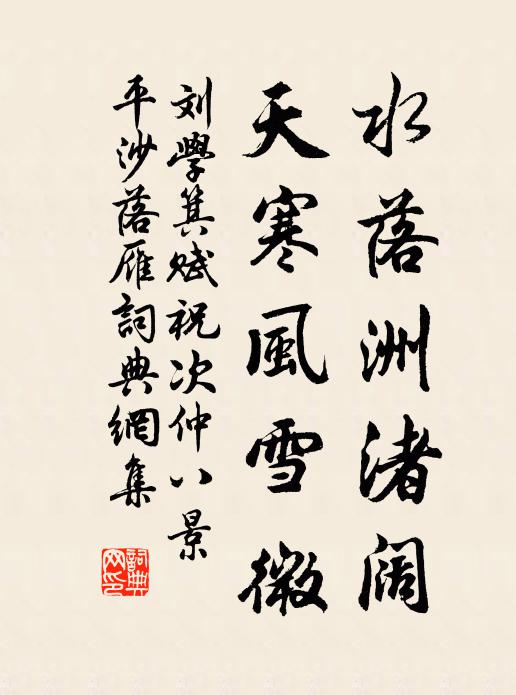 水落洲渚阔
天寒風雪微
刘學箕赋祝次仲八景
平沙落雁詞典網集
詞典
网印